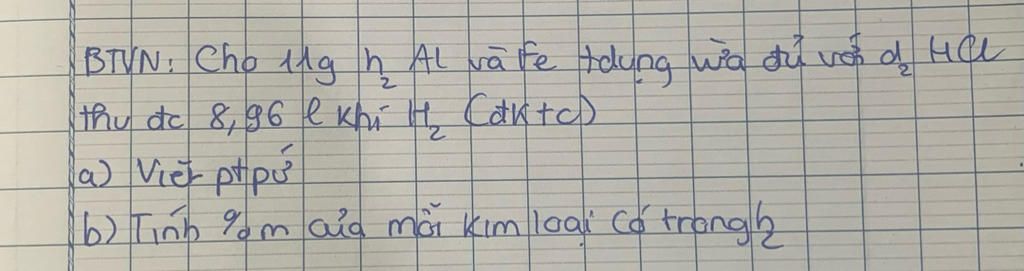 BTVN: Cho 11g h₂ Al và Fe tdụng vừa đủ với d₂ HCl
thu đc 8,96 l khí H₂ (đktc)
a) Viết ptpứ
b) Tính %m của mỗi kim loại có trong h₂